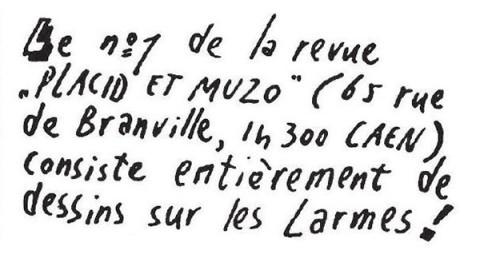 Le nº1 de la revue
„PLACID ET MUZO" (65 rue
de Branville, 14 300 CAEN)
consiste entièrement de
dessins sur les Larmes!